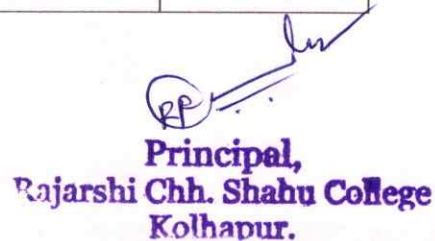 RP
Principal,
Rajarshi Chh. Shahu College
Kolhapur.